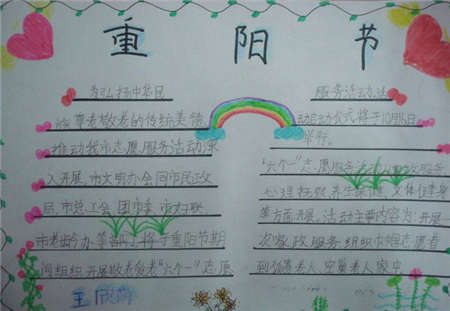 重阳节
为弘扬中华民
族尊老敬老的传统美德
推动我市志愿服务活动深
入开展,市文明办会同市民政
局,市总工会,团市委,市妇联
市老龄办等部门将于重阳节期
间组织开展敬老爱老“六个一”志愿
王欣
服务活动,活
动启动仪式将于10月15日
举行。
“六个一”志愿服务活动以家政服务
心理抚慰,养生保健,文体健身
等方面开展,活动主要内容为:开展一
次家政服务,组织巾帼志愿者
到孤寡老人,空巢老人家中